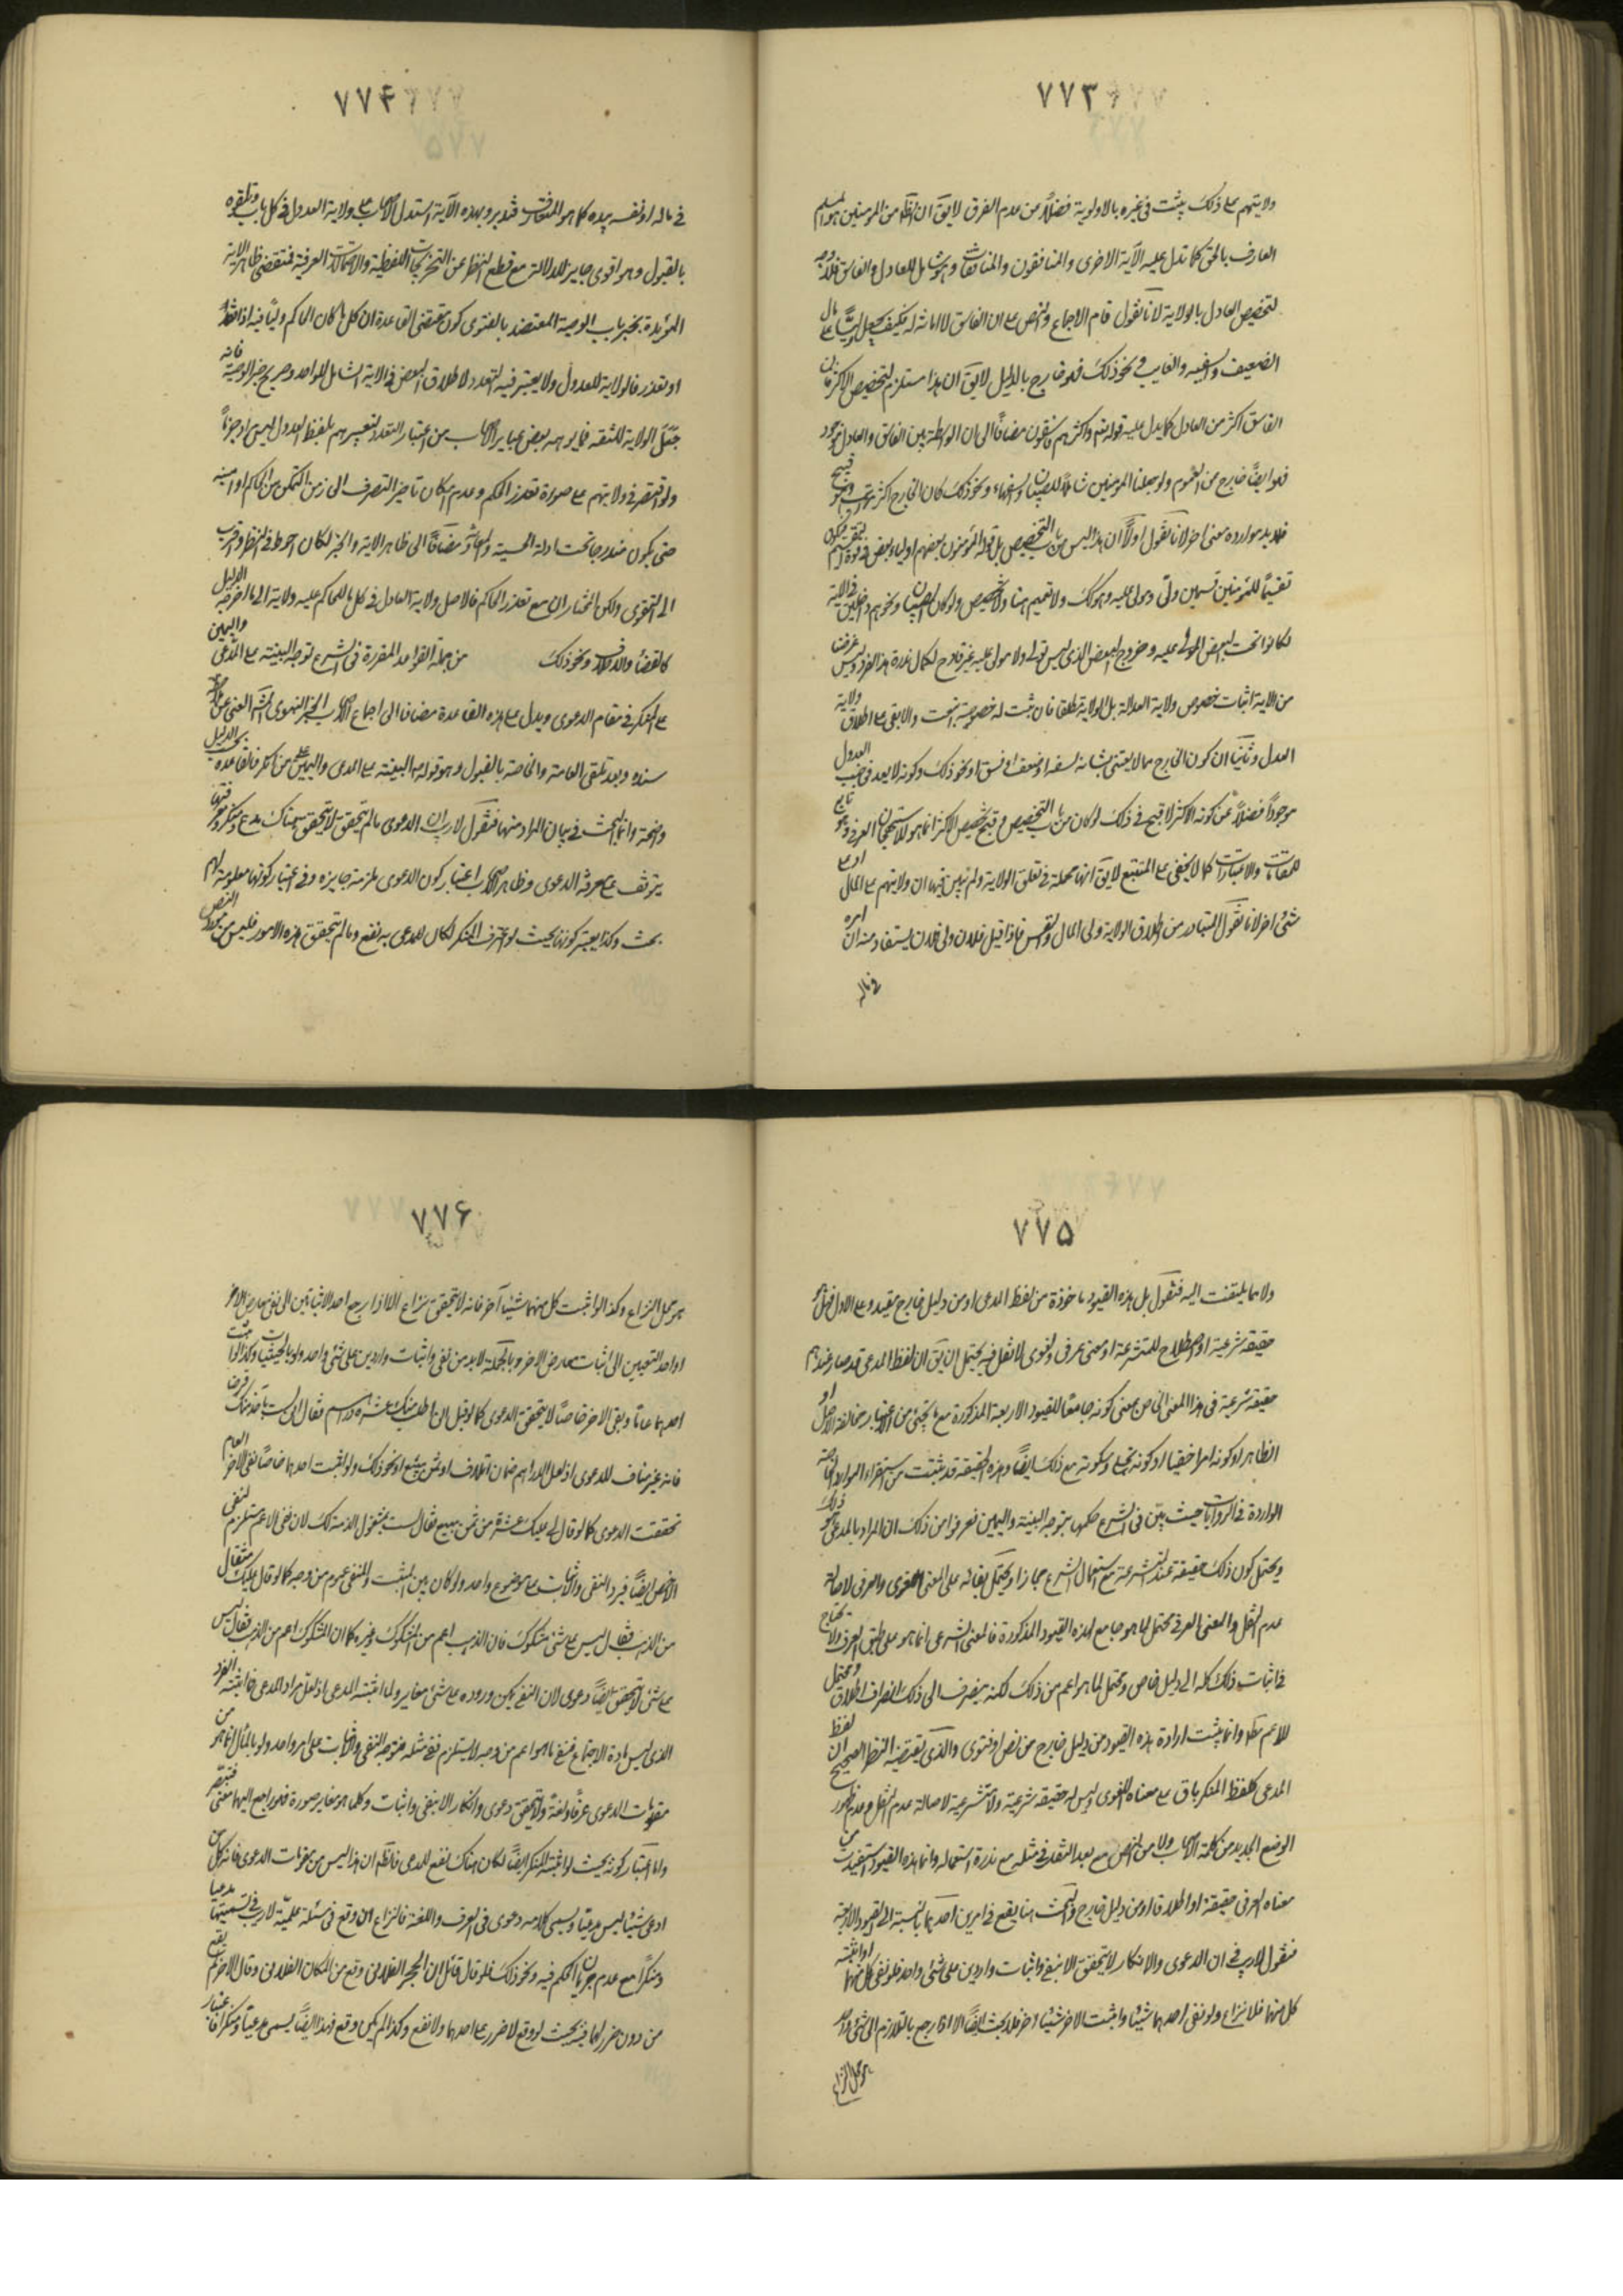 ٧٧٣
ولايتهم على ذلك يثبت في غيره بالاولوية فضلاً عن عدم الفرق لا يق ان الظ من المومنين هو المسلم
العارف بالحق كما تدل عليه الآية الاخرى والمنافقون والمنافقات وهو شامل للعادل والفاسق فلا وجه
لتخصيص العادل بالولاية لانا نقول قام الاجماع والنص على ان الفاسق لا امانة له فكيف يجعل وليّاً على مال
الضعيف والسفيه والغايب ونحو ذلك فهو خارج بالدليل لا يق ان هذا مستلزم لتخصيص الاكثر فان
الفاسق اكثر من العادل كما يدل عليه قوله تع واكثرهم فاسقون مضافاً الى ان الواسطة بين الفاسق والعادل موجود
فهو ايضاً خارج من العموم ولو جعلنا المومنين شاملاً للصبيان والسفهاء ونحو ذلك كان الخارج اكثر وهو قبيح
فلا بد من ارادة معنى اخر لانا نقول اولاً ان هذا ليس من باب التخصيص بل قوله المؤمنون بعضهم اولياء بعض في قوة
تقسيماً للمؤمنين قسمين ولّي ومولى عليه وهو كك ولا تعميم هنا ولا تخصيص ولو كان الصبيان ونحوهم داخلين في الاية
لكانوا تحت البعض المولّى عليه وخروج البعض الذي ليس بولي ولا مولى عليه غير قادح لكمال ندرة هذا الفرد وليس غرضنا
من الاية اثبات خصوص ولاية العدالة بل الولاية مطلقا فان ثبت له خصوصية والا بقى على اطلاق ولاية
العدل وثانياً ان كون الخارج مما لا يعتنى بشانه لسفه او ضعف او فسق او نحو ذلك وكونه لا يعد في جنب العدول
موجوداً فضلاً عن كونه الاكثر لا قبح في ذلك لو كان من باب التخصيص وقبح تخصيص الاكثر انما هو للاستهجان العرفي وهو تابع
للمقامات والاعتبارات كما لا يخفى على المتتبع لا يق انها مجملة في تعلق الولاية ولم يبين فيها ان ولايتهم على المال او على
شئ اخر لانا نقول المتبادر من اطلاق الولاية ولى المال والنفس فاذا قيل فلان ولي فلان يستفاد منه ان امره
في ماله
٧٧۴
في ماله او نفسه بيده كما هو المتعارف فتدبر وبهذه الآية استدل الاصحاب على ولاية العدول في كل باب وتلقوه
بالقبول وهو اقوى جابر للدلالة مع قطع النظر عن التخريجات اللفظية والاحتمالات العرفية فمقتضى ظاهر الاية
المؤيدة بخبر باب الوصية المعتضد بالفتوى كون مقتضى القاعدة ان كل ما كان الحاكم وليّاً فيه اذا فقد
او تعذر فالولاية للعدول ولا يعتبر فيه التعدد لاطلاق البعض في الاية الشامل للواحد وصريح خبر الوصية فانه
جعل الولاية للثقة فما يوهمه بعض عباير الاصحاب من اعتبار التعدد لتعبيرهم بلفظ العدول ليس اد جزماً
ولو اقتصر في ولايتهم على صورة تعذر الحكم وعدم امكان تاخير التصرف الى زمن التمكن من الحاكم او امينه
حتى يكون مندرجا تحت ادلة الحسبة والمعاونة مضافاً الى ظاهر الاية والخبر لكان احوط في النظر واقرب
الى التقوى ولكن المختار ان مع تعذر الحاكم فالاصل ولاية العادل في كل ما للحاكم عليه ولاية الا ما اخرجه الدليل
كالقضاء والدعاوى ونحو ذلك من جملة القواعد المقررة في الشرع توجه البينة على المدّعي واليمين
على المنكر في مقام الدعوى ويدل على هذه القاعدة مضافا الى اجماع الاصحاب الخبر النبوى المشهور الغني عن
سنده وبعد تلقى العامة والخاصة بالقبول وهو قوله البينة على المدعى واليمين على من انكر فالقاعدة بحسب الدليل
واضحة وانما البحث في بيان المراد منها فنقول لا ريب ان الدعوى ما لم تتحقق لا يتحقق هناك مدع ومنكر ومعرفتهما
يتوقف على معرفة الدعوى وظاهر الاصحاب اعتبار كون الدعوى ملزمة جايزة وفي اعتبار كونها معلومة لهم
بحث وكذا يعتبر كونها بحيث لو اعترف المنكر لكان للمدعى به نفع وما لم تتحقق هذه الامور فليس من مورد النص
٧٧۵
ولا مما يلتفت اليه فنقول بل هذه القيود ماخوذة من لفظ المدعى او من دليل خارج مقيد وعلى الاول فهل هو
حقيقة شرعية او اصطلاح للمتشرعة او معنى عرفي ولغوى لا نقل فيه يحتمل ان يق ان لفظ المدعى قد صار عندهم
حقيقة شرعية في هذا المعنى الخاص بمعنى كونه جامعاً للقيود الاربعة المذكورة مع ما يجئ من الاعتبار بمخالفة الاصل او
الظاهر او كونه امرا خفيا او كونه يخلى وسكوته مع ذلك ايضاً وهذه الحقيقة قد ثبتت من استقراء الموارد الخاصة
الواردة في الروايات حيث بيّن في الشرع حكمها بتوجه البينة واليمين فعرفوا من ذلك ان المراد بالمدعى هو ذلك
ويحتمل كون ذلك حقيقة عند المتشرعة مع استعمال الشرع مجازا ويحتمل بقائه على المعنى اللغوى والعرفي لاصالة
عدم النقل والمعنى العرفي محتمل لما هو جامع لهذه القيود المذكورة فالمعنى الشرعى انما هو على طبق العرف ولا يحتاج
في اثبات ذلك كله الى دليل خاص ويحتمل لما هو اعم من ذلك لكنه ينصرف الى ذلك انصراف اطلاق ويحتمل
للاعم مطلقا وانما يثبت ارادة هذه القيود من دليل خارج من نص او فتوى والذي يقتضيه النظر الصحيح ان لفظ
المدعى كلفظ المنكر باق على معناه اللغوى ليس له حقيقة شرعية ولا متشرعية لاصالة عدم النقل وعدم ظهور
الوضع الجديد من كلمة الاصحاب ولا من النص مع بعد النقل في مثله مع ندرة استعماله وانما هذه القيود استفيدت من
معناه العرفي حقيقة او اطلاقا او من دليل خارج والبحث هنا يقع في امرين احدهما بالنسبة الى القيود الاربعة
فنقول لا ريب في ان الدعوى والانكار لا يتحقق الا بنفي واثبات واردين على شئ واحد فلو نفى كل منهما او اثبته
كل منهما فلا نزاع ولو نفى احدهما شيئا واثبت الاخر شيئا اخر فلا بحث ايضاً الا اذا رجع بالتلازم الى شئ واحد
هو محل النزاع
٧٧۶
هو محل النزاع وكذا لو اثبت كل منهما شيئا آخر فانه لا يتحقق نزاع الا اذا رجع احد الاثباتين الى نفي معارض الاخر
او احد النفيين الى اثبات معارض الاخر وبالجملة لا بد من نفى واثبات واردين على شئ واحد ولو بالحيثيات وكذا لو اثبت
احدهما عامّاً ونفى الاخر خاصاً لا يتحقق الدعوى كما لو قيل ان اطلب منك عشرة دراهم فقال لست باخذ منك قرضا
فانه غير مناف للدعوى اذ لعل الدراهم ضمان اتلاف او ثمن مبيع او نحو ذلك ولو اثبت احدهما خاصاً ونفى الاخر العام
تحققت الدعوى كما لو قال لي عليك عشرة من ثمن مبيع فقال لست بمشغول الذمة لك لان نفي الاعم مستلزم لنفي
الاخص ايضاً فيرد النفى والاثبات على موضوع واحد ولو كان بين المثبت والمنفي عموم من وجه كما لو قال عليك مثقال
من الذهب فقال ليس على شئ مشكوك فان الذهب اعم من المشكوك وغيره كما ان المشكوك اعم من الذهب فقال ليس
على شئ لا يتحقق ايضاً دعوى لان النفي يمكن وروده على شئ مغاير ولما اثبته المدعى اذ لعل مراد المدعى فيما اثبته الفرد
الذى ليس مادة الاجتماع فنفي ما هو اعم من وجه لا يستلزم نفي مثله فتوجه النفي والاثبات على امر واحد ولو بالمآل انما هو من
مقومات الدعوى عرفاً ولغةً ولا يتحقق دعوى وانكار الا بنفي واثبات وكلما هو مغاير صورة فهو راجع اليهما معنى
واما اعتبار كونه بحيث لو اثبته المنكر ايضاً لكان هناك نفع للمدعى فالظ ان هذا ليس من مقومات الدعوى فانه كل من
ادعى شيئاً ليس مدعيّاً ويسمى كلامه دعوى في العرف واللغة فالنزاع ان وقع في مسئلة علميّة لا ريب في تسميتهما مدعيا
ومنكراً مع عدم جريان الحكم فيه ونحو ذلك فلو قال قائل ان الحجر الفلانى وقع من المكان الفلانى وقال الاخر لم يقع
من دون ضرر لهما فيه بحيث لو وقع لا ضرر على احدهما ولا نفع وكذا لو لم يكن وقع فهذا ايضاً يسمى مدعياً ومنكرا